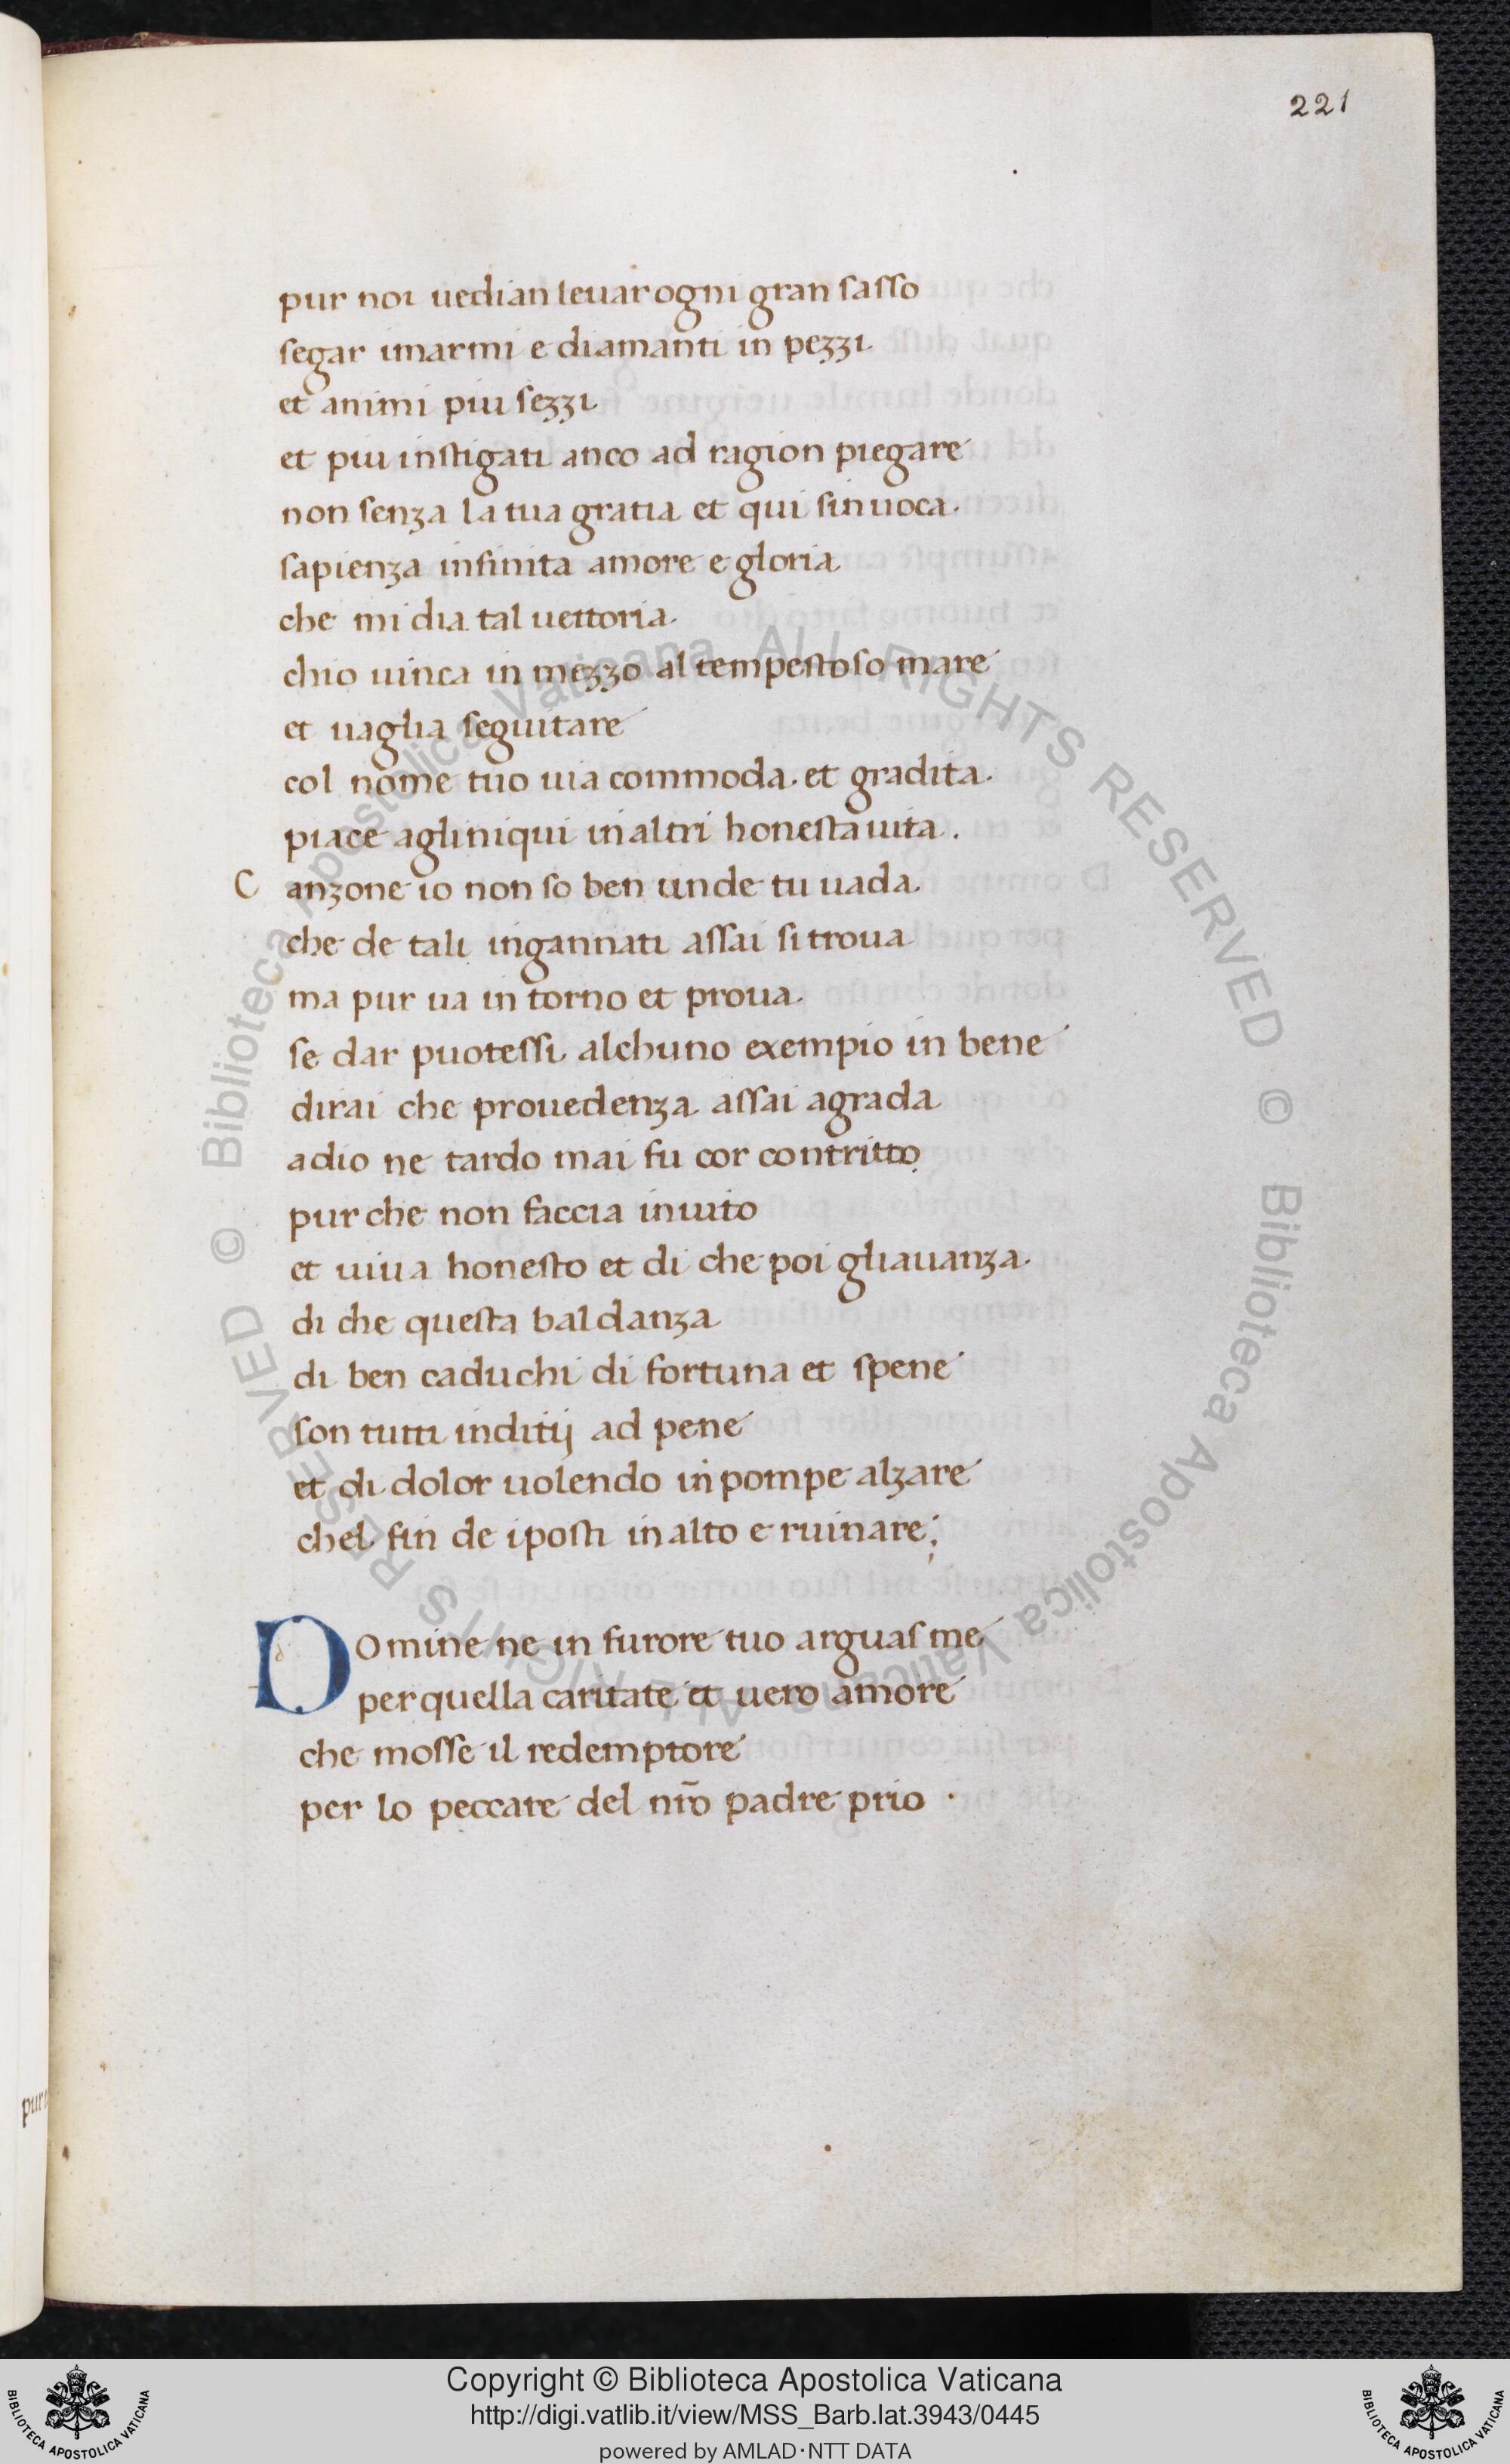 221
pur noi uedian leuar ogni gran sasso
segar imarmi e diamanti in pezzi
et animi piu sezzi
et piu instigati anco ad ragion piegare
non senza la tua gratia et qui sinuoca.
sapienza infinita amore e gloria
che mi dia tal uettoria.
chio uinca in mezzo al tempestoso mare
et uaglia seguitare
col nome tuo uia commoda. et gradita.
piace agliniqui in altri honesta uita.
C anzone io non so ben unde tu uada.
che de tali ingannati assai si troua
ma pur ua in torno et proua.
se dar puotessi alchuno exempio in bene
dirai che prouedenza assai agrada
adio ne tardo mai fu cor contritto
pur che non faccia inuito
et uiua honesto et di che poi gliauanza.
di che questa baldanza
di ben caduchi di fortuna et spene
son tutti inditij ad pene
et di dolor uolendo in pompe alzare
chel fin de iposti in alto e ruinare;
Domine ne in furore tuo arguas me
per quella caritate et uero amore
che mosse il redemptore
per lo peccare del nr̄o padre prio .
pur
© Biblioteca Apostolica Vaticana ALL RIGHTS RESERVED
© Biblioteca Apostolica Vaticana ALL RIGHTS RESERVED
Copyright © Biblioteca Apostolica Vaticana
http://digi.vatlib.it/view/MSS_Barb.lat.3943/0445
powered by AMLAD·NTT DATA
BIBLIOTECA APOSTOLICA VATICANA
BIBLIOTECA APOSTOLICA VATICANA